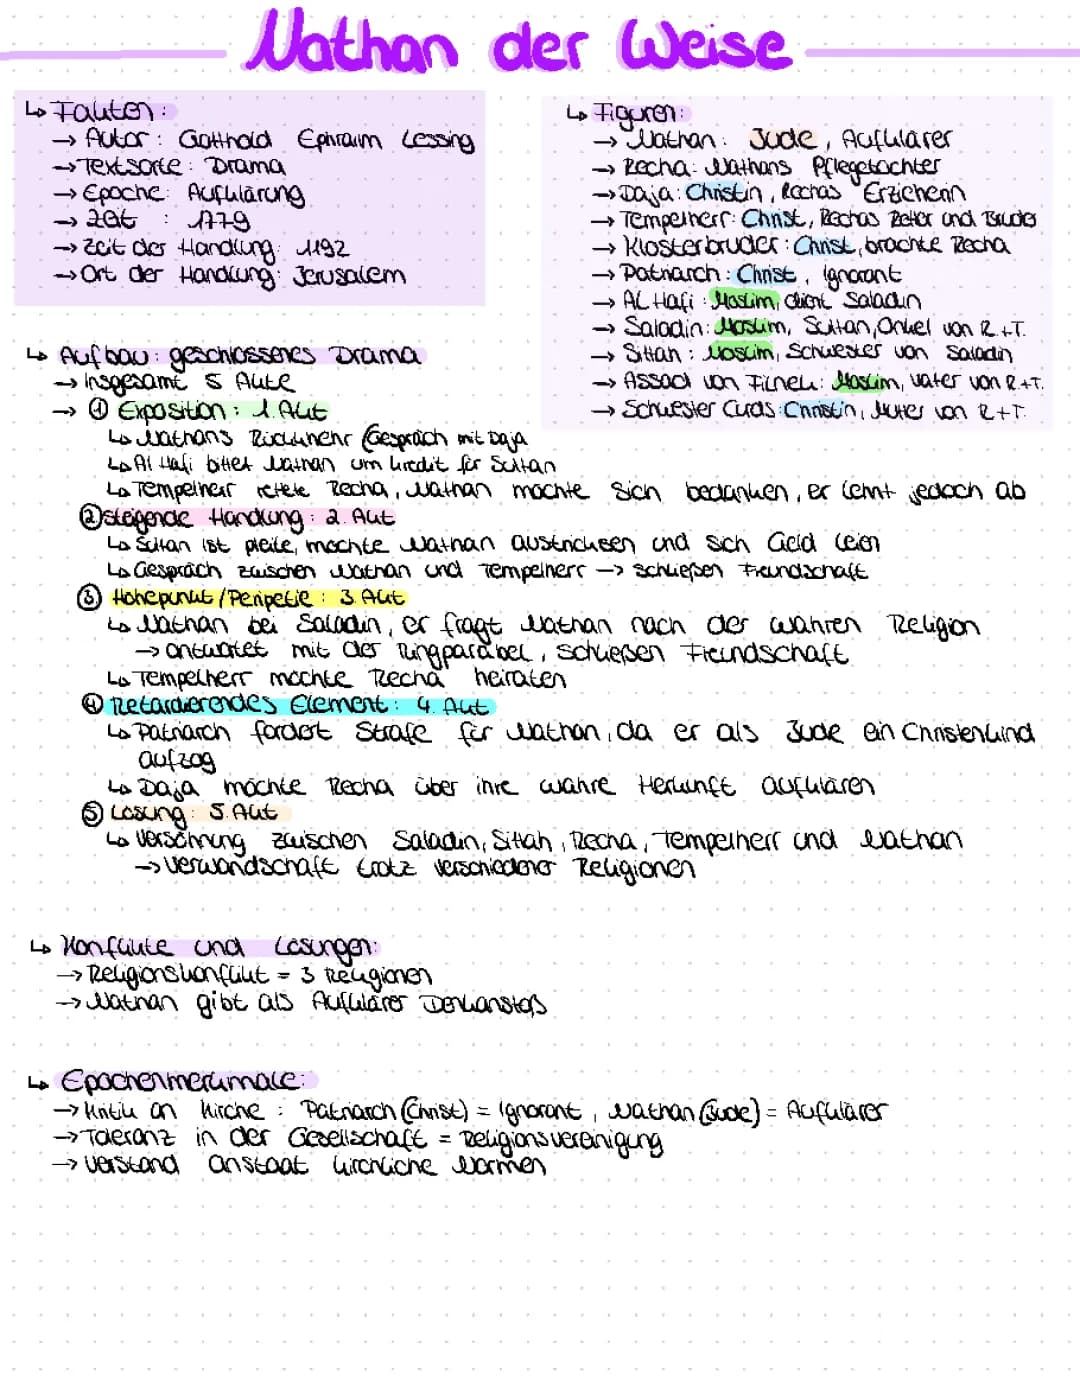 Nathan der Weise
↳ Fakten:
→ Autor: Gotthold Ephraim Lessing
→ Textsorte: Drama
→ Epoche: Aufklärung
→ Zeit: 1779
→ Zeit der Handlung: 1192
→ Ort der Handlung: Jerusalem
↳ Figuren:
→ Nathan: Jude, Aufklärer
→ Recha: Nathans Pflegetochter
→ Daja: Christin, Rechas Erzieherin
→ Tempelherr: Christ, Rechas Retter und Bruder
→ Klosterbruder: Christ, brachte Recha
→ Patriarch: Christ, ignorant
→ Al Hafi: Moslim, dient Saladin
→ Saladin: Moslim, Sultan, Onkel von R+T.
→ Sittah: Moslim, Schwester von Saladin
→ Assad von Filnek: Moslim, Vater von R+T.
→ Schwester Curds: Christin, Mutter von R+T.
↳ Aufbau: geschlossenes Drama
→ insgesamt 5 Akte
→ ① Exposition: 1. Akt
↳ Nathans Rückkehr (Gespräch mit Daja
↳ Al Hafi bittet Nathan um Kredit für Sultan
↳ Tempelherr rettete Recha, Nathan möchte sich bedanken, er lehnt jedoch ab
② steigende Handlung: 2. Akt
↳ Sultan ist pleite, möchte Nathan austricksen und sich Geld leien
↳ Gespräch zwischen Nathan und Tempelherr → schließen Freundschaft
③ Höhepunkt/Peripetie: 3. Akt
↳ Nathan bei Saladin, er fragt Nathan nach der wahren Religion
→ antwortet mit der Ringparabel, schließen Freundschaft
↳ Tempelherr möchte Recha heiraten
④ Retardierendes Element: 4. Akt
↳ Patriarch fordert Strafe für Nathan, da er als Jude ein Christenkind
aufzog
↳ Daja möchte Recha über ihre wahre Herkunft aufklären
⑤ Lösung: 5. Akt
↳ Versöhnung zwischen Saladin, Sittah, Recha, Tempelherr und Nathan
→ Verwandschaft trotz verschiedener Religionen
↳ Konflikte und Lösungen:
→ Religionskonflikt = 3 Religionen
→ Nathan gibt als Aufklärer Denkanstoß
↳ Epochenmerkmale:
→ Kritik an Kirche: Patriarch (Christ) = ignorant, Nathan (Jude) = Aufklärer
→ Toleranz in der Gesellschaft = Religionsvereinigung
→ Verstand anstaat kirchliche Normen